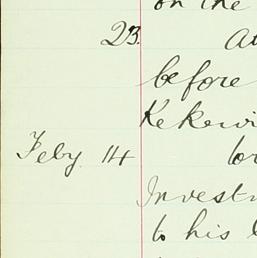 on the
23. At
before
Kekewi
Feby. 14 for
Investm
to his